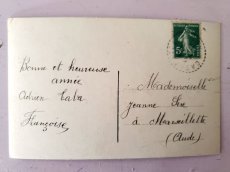 Bonne et heureuse
année
Françoise
Mademoiselle
Jeanne
à Marseillette
(Aude)